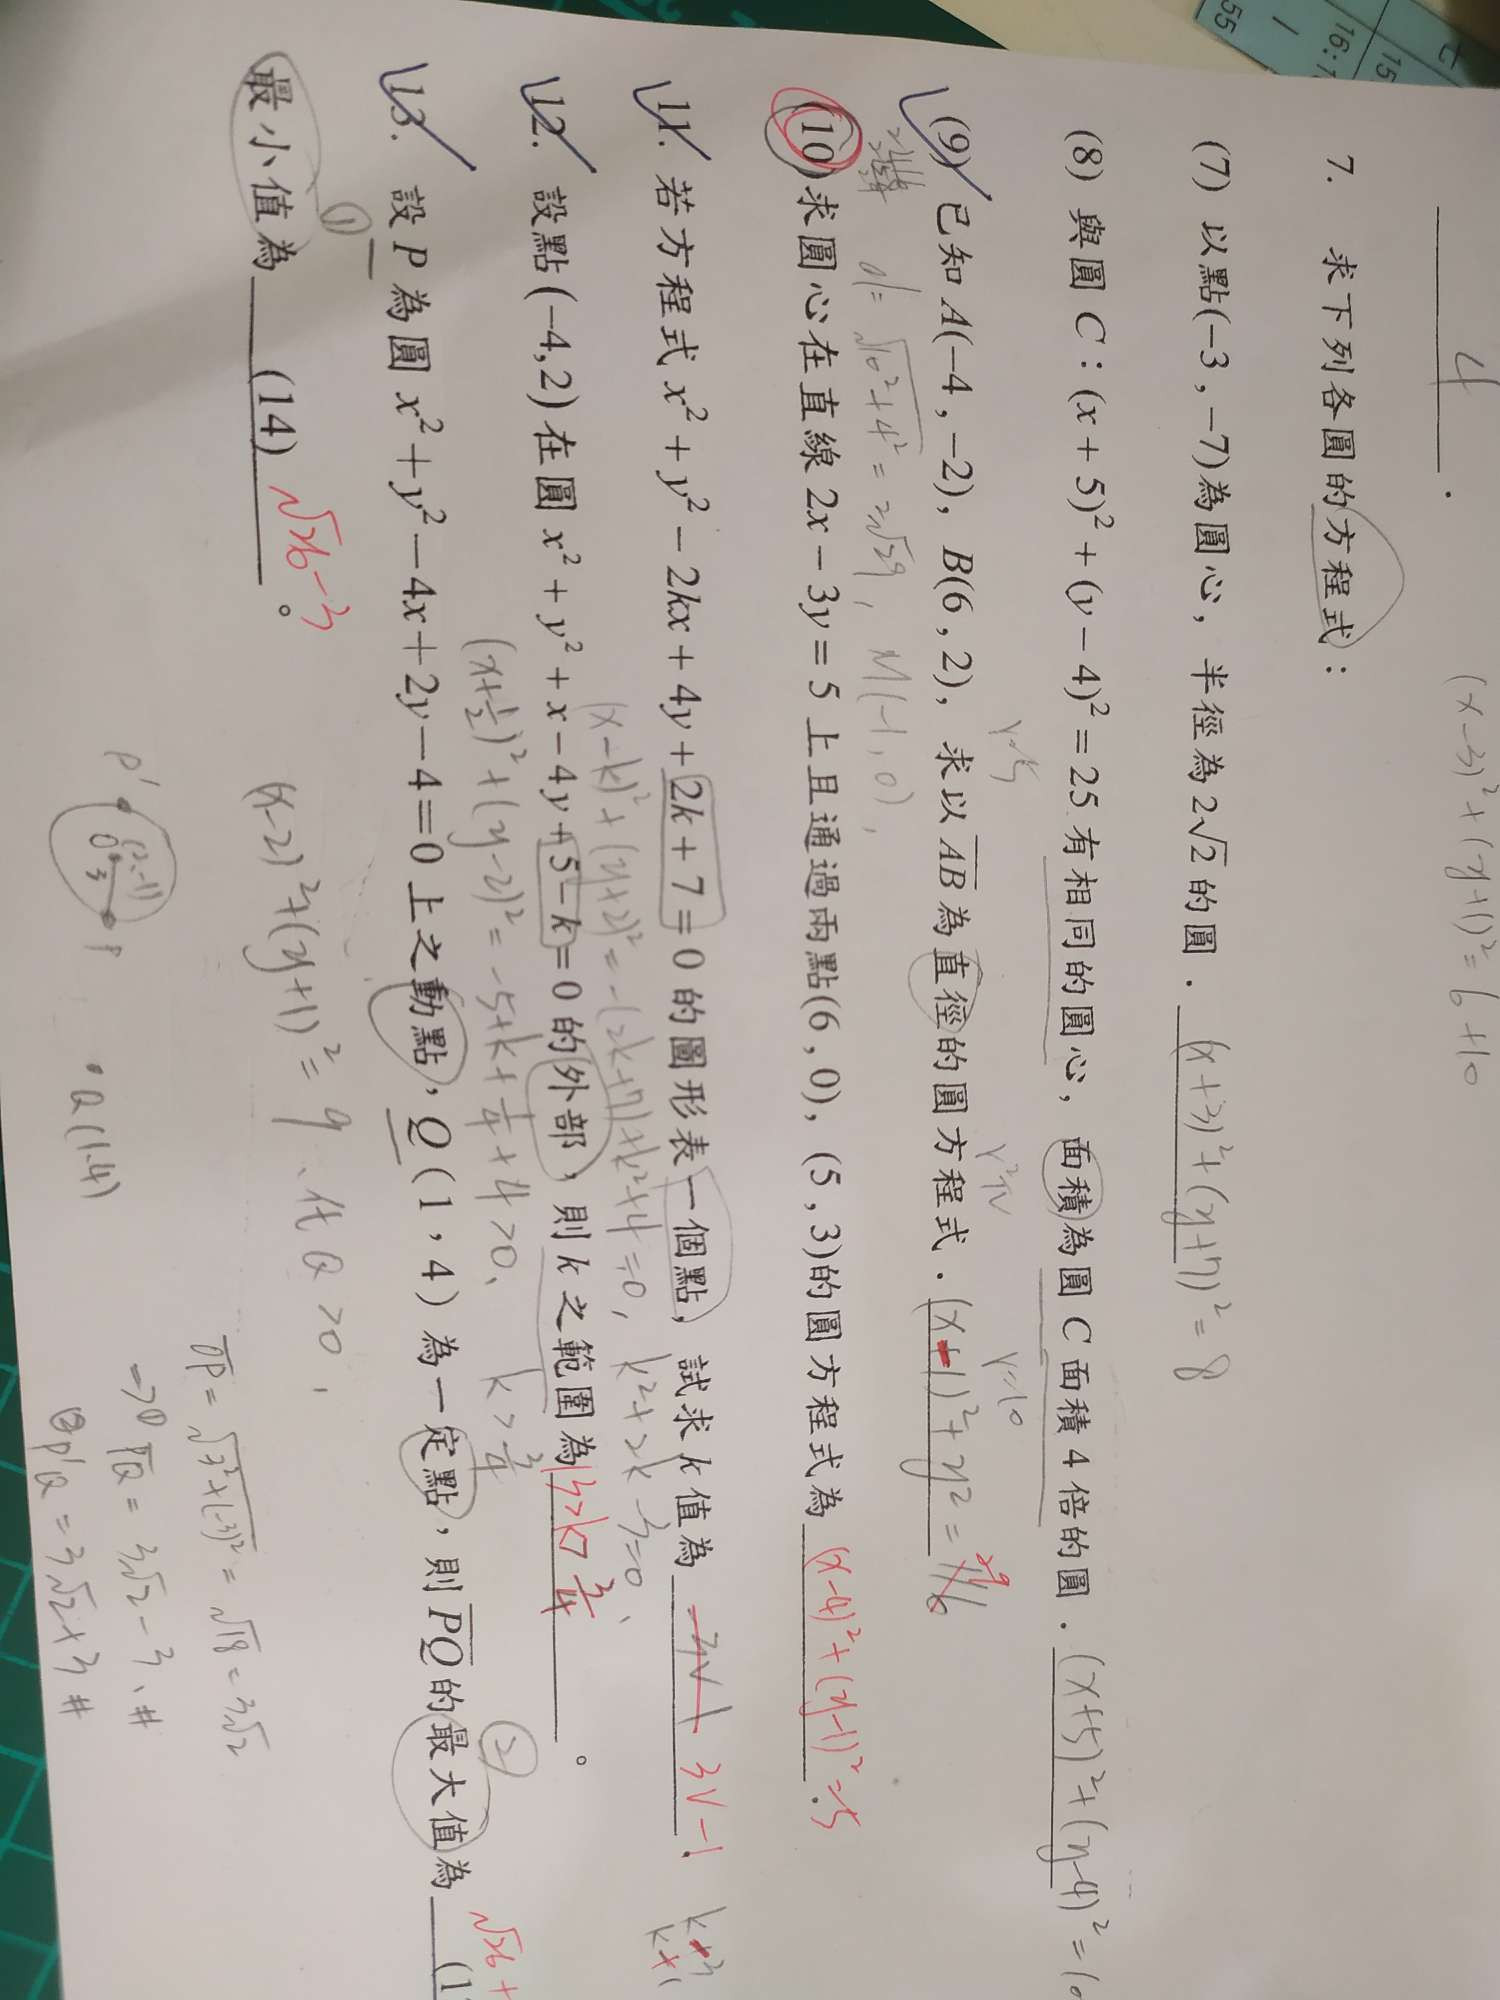 七
15
16:1
1
55
(x-3)²+(y+1)²=6+10
4
7. 求下列各圓的方程式：
(7) 以點(-3,-7)為圓心，半徑為2√2的圓．(x+3)²+(y+7)²=8
(8) 與圓C：(x+5)²+(y-4)²=25有相同的圓心，面積為圓C面積4倍的圓．(x+5)²+(y-4)²=10
r=5 r²π r=10
(9) 已知A(-4,-2)，B(6,2)，求以AB為直徑的圓方程式．(x-1)²+y²=
29
d=√10²+4²=2√29，M(-1,0)，
(10)求圓心在直線2x-3y=5上且通過兩點(6,0)，(5,3)的圓方程式為 (x-4)²+(y-1)²=5．
11. 若方程式x²+y²-2kx+4y+2k+7=0的圖形表一個點，試求k值為 3V-1．
(x-k)²+(y+2)²=-(2k+7)+k²+4=0，k²+2k-3=0、
12. 設點(-4,2)在圓x²+y²+x-4y+5-k=0的外部，則k之範圍為 13>k>3/4 。
(x+1/2)²+(y-2)²=-5+k+1/4+4>0、 k>3/4
②
13. 設P為圓x²+y²-4x+2y-4=0上之動點，Q(1,4)為一定點，則PQ的最大值為 (1
√26+
①
最小值為 (14) √26-3 。
(x-2)²+(y+1)²=9、代Q>0，
P' (2,-1) O 3 P
Q(1,4)
OP=√3²+(-3)²=√18=3√2
→① PQ=3√2-3、#
②P'Q=3√2+3 #